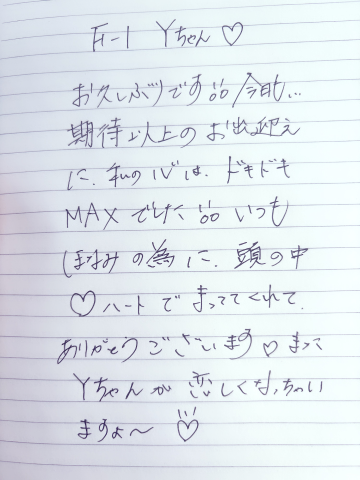 F-1 Yちゃん♡
お久しぶりです 今日も...
期待以上のお出迎え
に、私のIVは、ドキドキ
MAXでした いつも
ほなみの為に、頭の中
♡ハートでまっててくれて、
ありがとうございます♡まって
Yちゃんが恋しくなっちゃい
ますよ〜♡